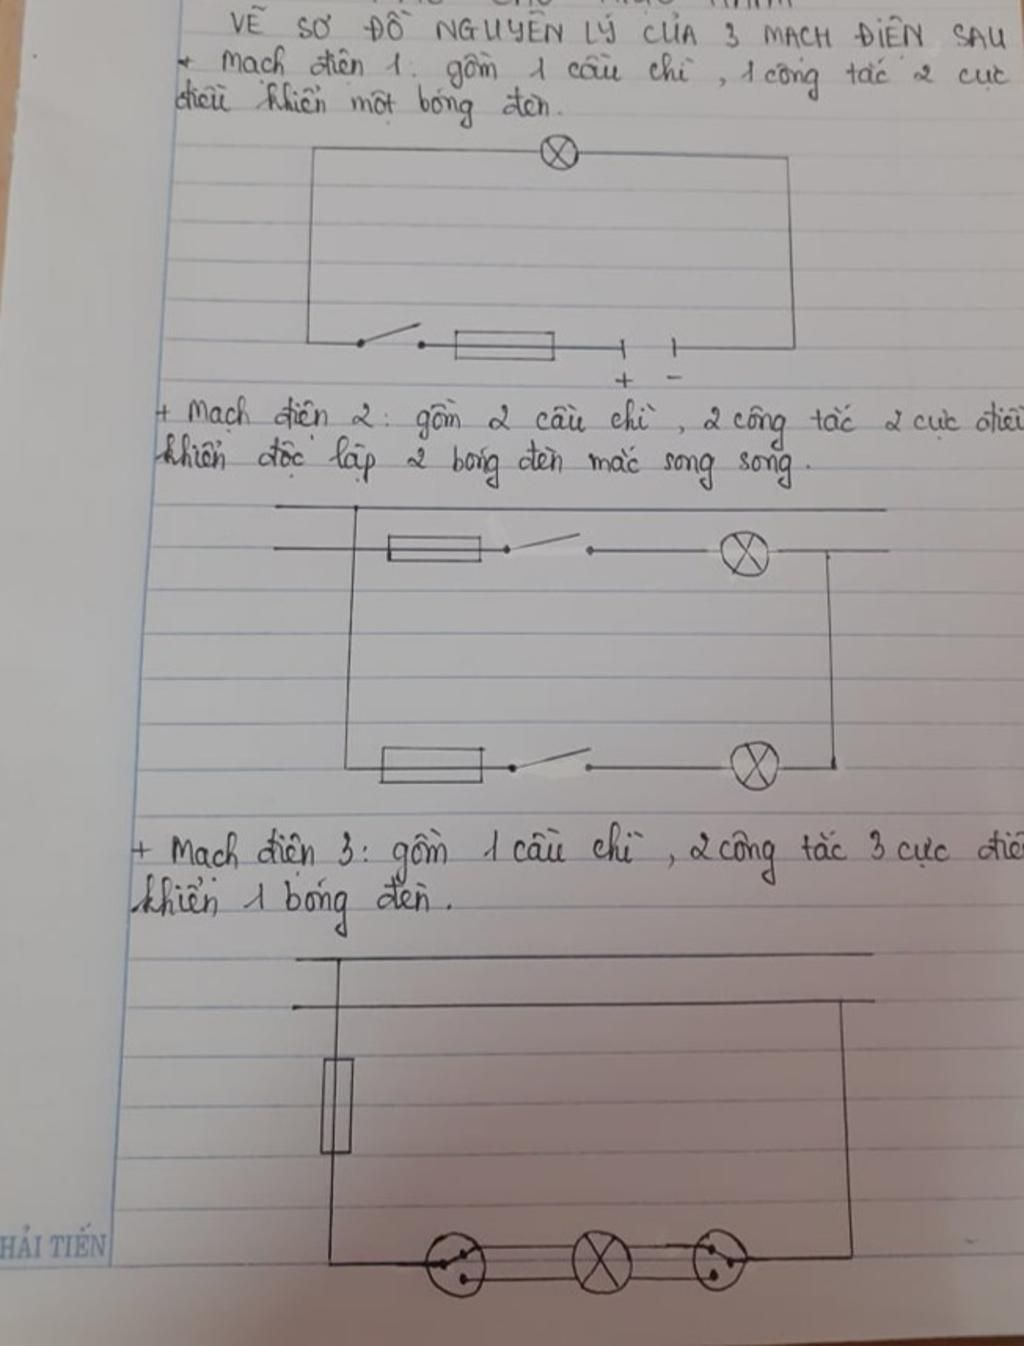 VẼ SƠ ĐỒ NGUYÊN LÝ CỦA 3 MẠCH ĐIỆN SAU
+ Mạch điện 1: gồm 1 cầu chì, 1 công tắc 2 cực
điều khiển một bóng đèn.
+ -
+ Mạch điện 2: gồm 2 cầu chì, 2 công tắc 2 cực điề
khiển độc lập 2 bóng đèn mắc song song.
+ Mạch điện 3: gồm 1 cầu chì, 2 công tắc 3 cực điề
khiển 1 bóng đèn.
HẢI TIẾN